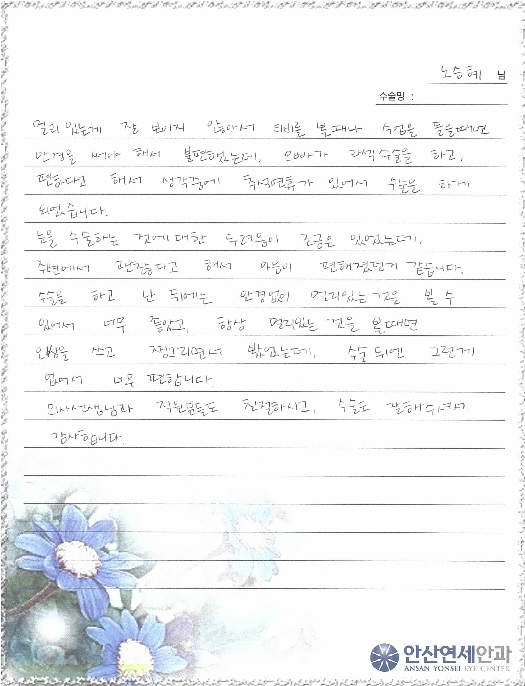 노승혜 님
수술명 :
멀리 있는게 잘 보이지 않아서 티비를 볼때나 수업을 들을때면
안경을 써야 해서 불편했는데, 오빠가 라섹수술을 하고,
편하다고 해서 생각중에 추석연휴가 있어서 수술을 하게
되었습니다.
눈을 수술하는 것에 대한 두려움이 조금은 있었는데,
주변에서 괜찮다고 해서 마음이 편해졌던거 같습니다.
수술을 하고 난 뒤에는 안경없이 멀리있는 것을 볼 수
있어서 너무 좋았고, 항상 멀리있는 것을 볼때면
인상을 쓰고 찡그리면서 봤었는데, 수술 뒤엔 그런게
없어서 너무 편합니다.
의사선생님과 직원분들도 친절하시고, 수술도 잘해주셔서
감사합니다.
안산연세안과
ANSAN YONSEI EYE CENTER